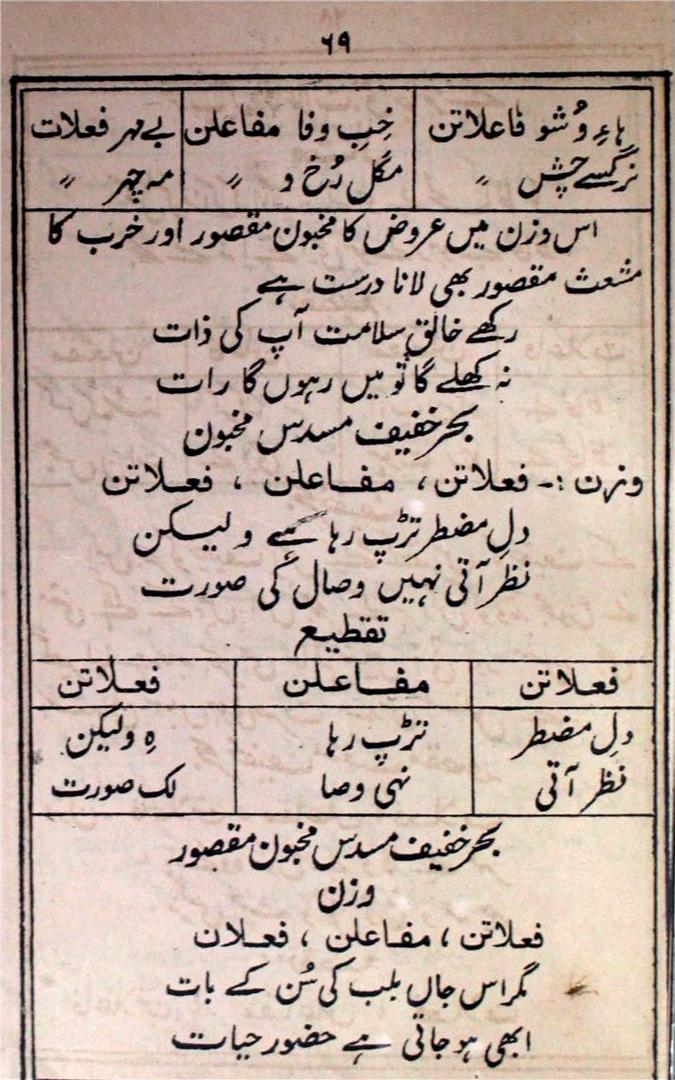 ۶۹
ہاءِ وُشو فاعلاتن خبِ وفا مفاعلن بے مہر فعلات
نرگسے چش ״ مگل رُخ و ״ مہ چہر ״
اس وزن میں عروض کا مخبون مقصور اور خرب کا
مشعث مقصور بھی لانا درست ہے
رکھے خالق سلامت آپ کی ذات
نہ کھلے گا تو میں رہوں گا رات
بحر خفیف مسدس مخبون
وزن :۔ فعلاتن ، مفاعلن ، فعلاتن
دلِ مضطر تڑپ رہا ہے ولیکن
نظر آتی نہیں وصال کی صورت
تقطیع
فعلاتن مفاعلن فعلاتن
دلِ مضطر تڑپ رہا ہِ ولیکن
نظر آتی نہی وصا لک صورت
بحر خفیف مسدس مخبون مقصور
وزن
فعلاتن ، مفاعلن ، فعلان
مگر اس جاں بلب کی سُن کے بات
ابھی ہو جاتی ہے حضور حیات